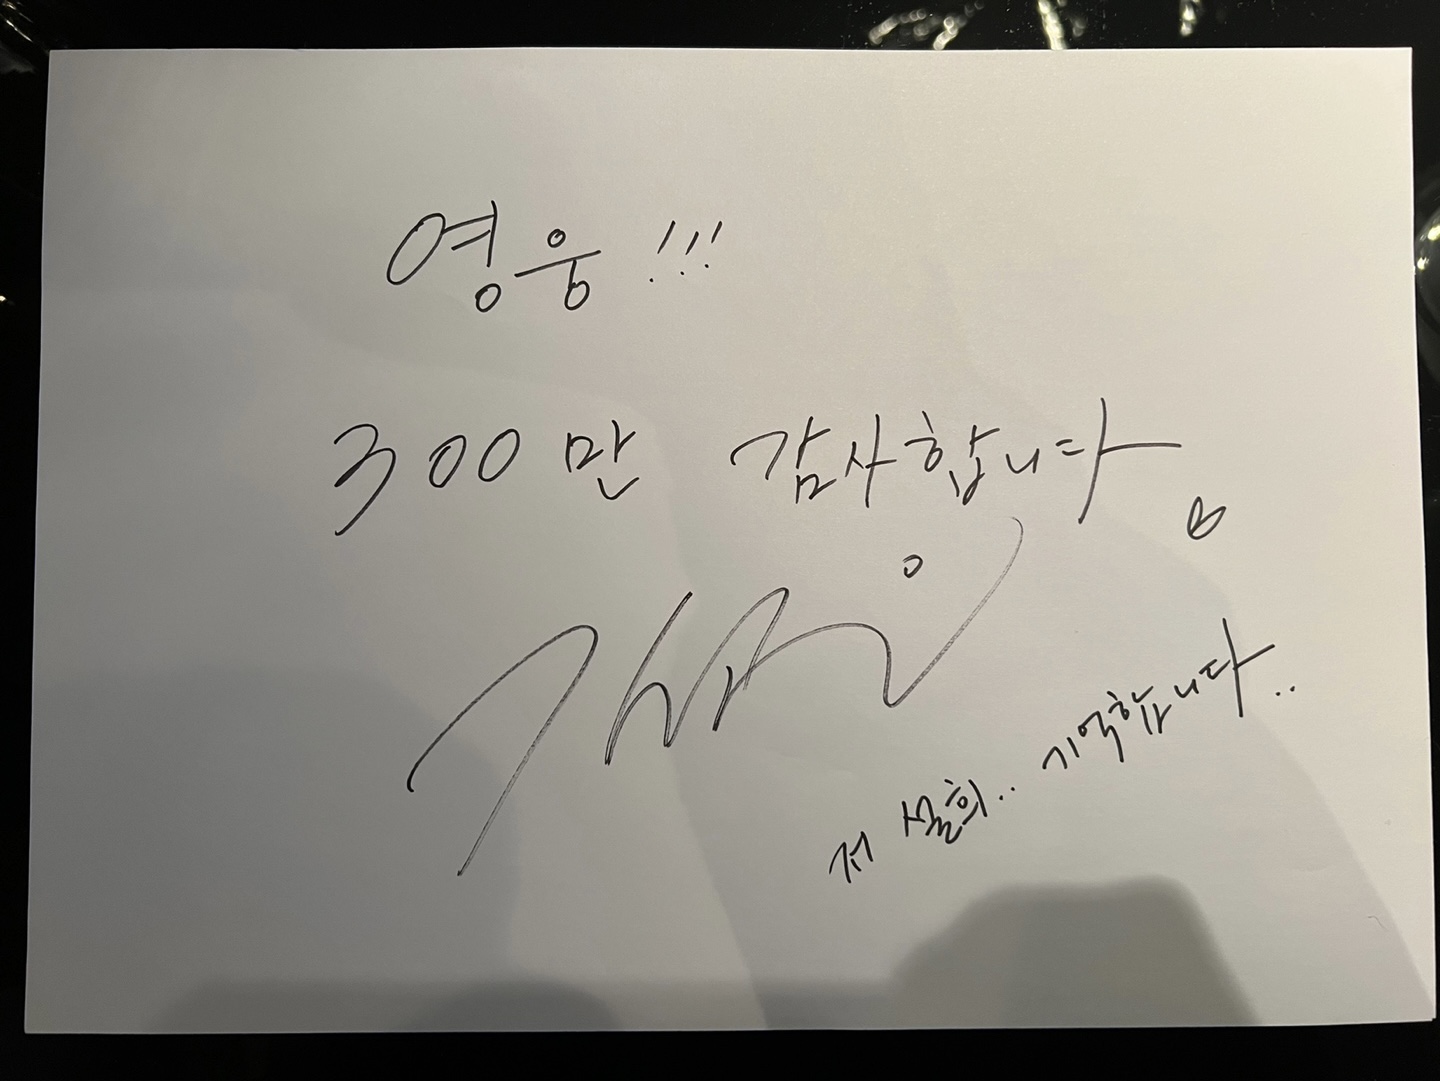 영웅!!!
300만 감사합니다
저 설희.. 기억합니다..